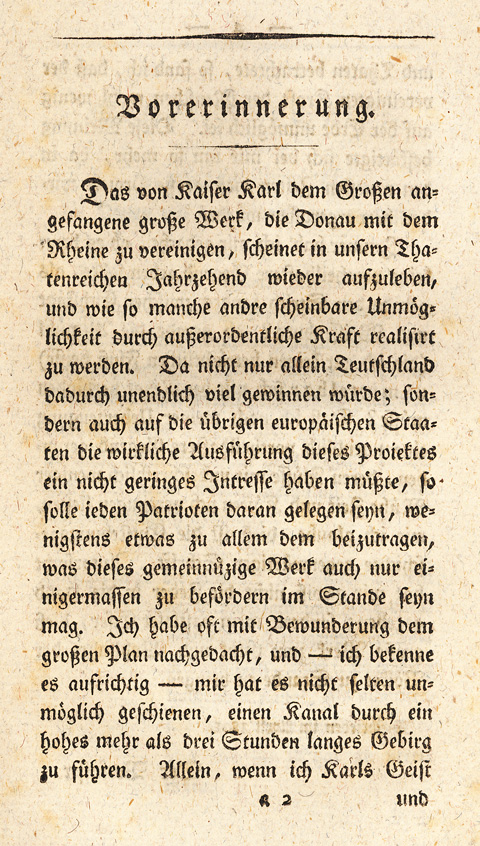 Vorerinnerung.
Das von Kaiser Karl dem Großen an=
gefangene große Werk, die Donau mit dem
Rheine zu vereinigen, scheinet in unsern Tha=
tenreichen Jahrzehend wieder aufzuleben,
und wie so manche andre scheinbare Unmög=
lichkeit durch außerordentliche Kraft realisirt
zu werden. Da nicht nur allein Teutschland
dadurch unendlich viel gewinnen würde; son=
dern auch auf die übrigen europäischen Staa=
ten die wirkliche Ausführung dieses Proiektes
ein nicht geringes Intresse haben müßte, so
solle ieden Patrioten daran gelegen seyn, we=
nigstens etwas zu allem dem beizutragen,
was dieses gemeinnüzige Werk auch nur ei=
nigermassen zu befördern im Stande seyn
mag. Ich habe oft mit Bewunderung dem
großen Plan nachgedacht, und — ich bekenne
es aufrichtig — mir hat es nicht selten un=
möglich geschienen, einen Kanal durch ein
hohes mehr als drei Stunden langes Gebirg
zu führen. Allein, wenn ich Karls Geist
a 2 und